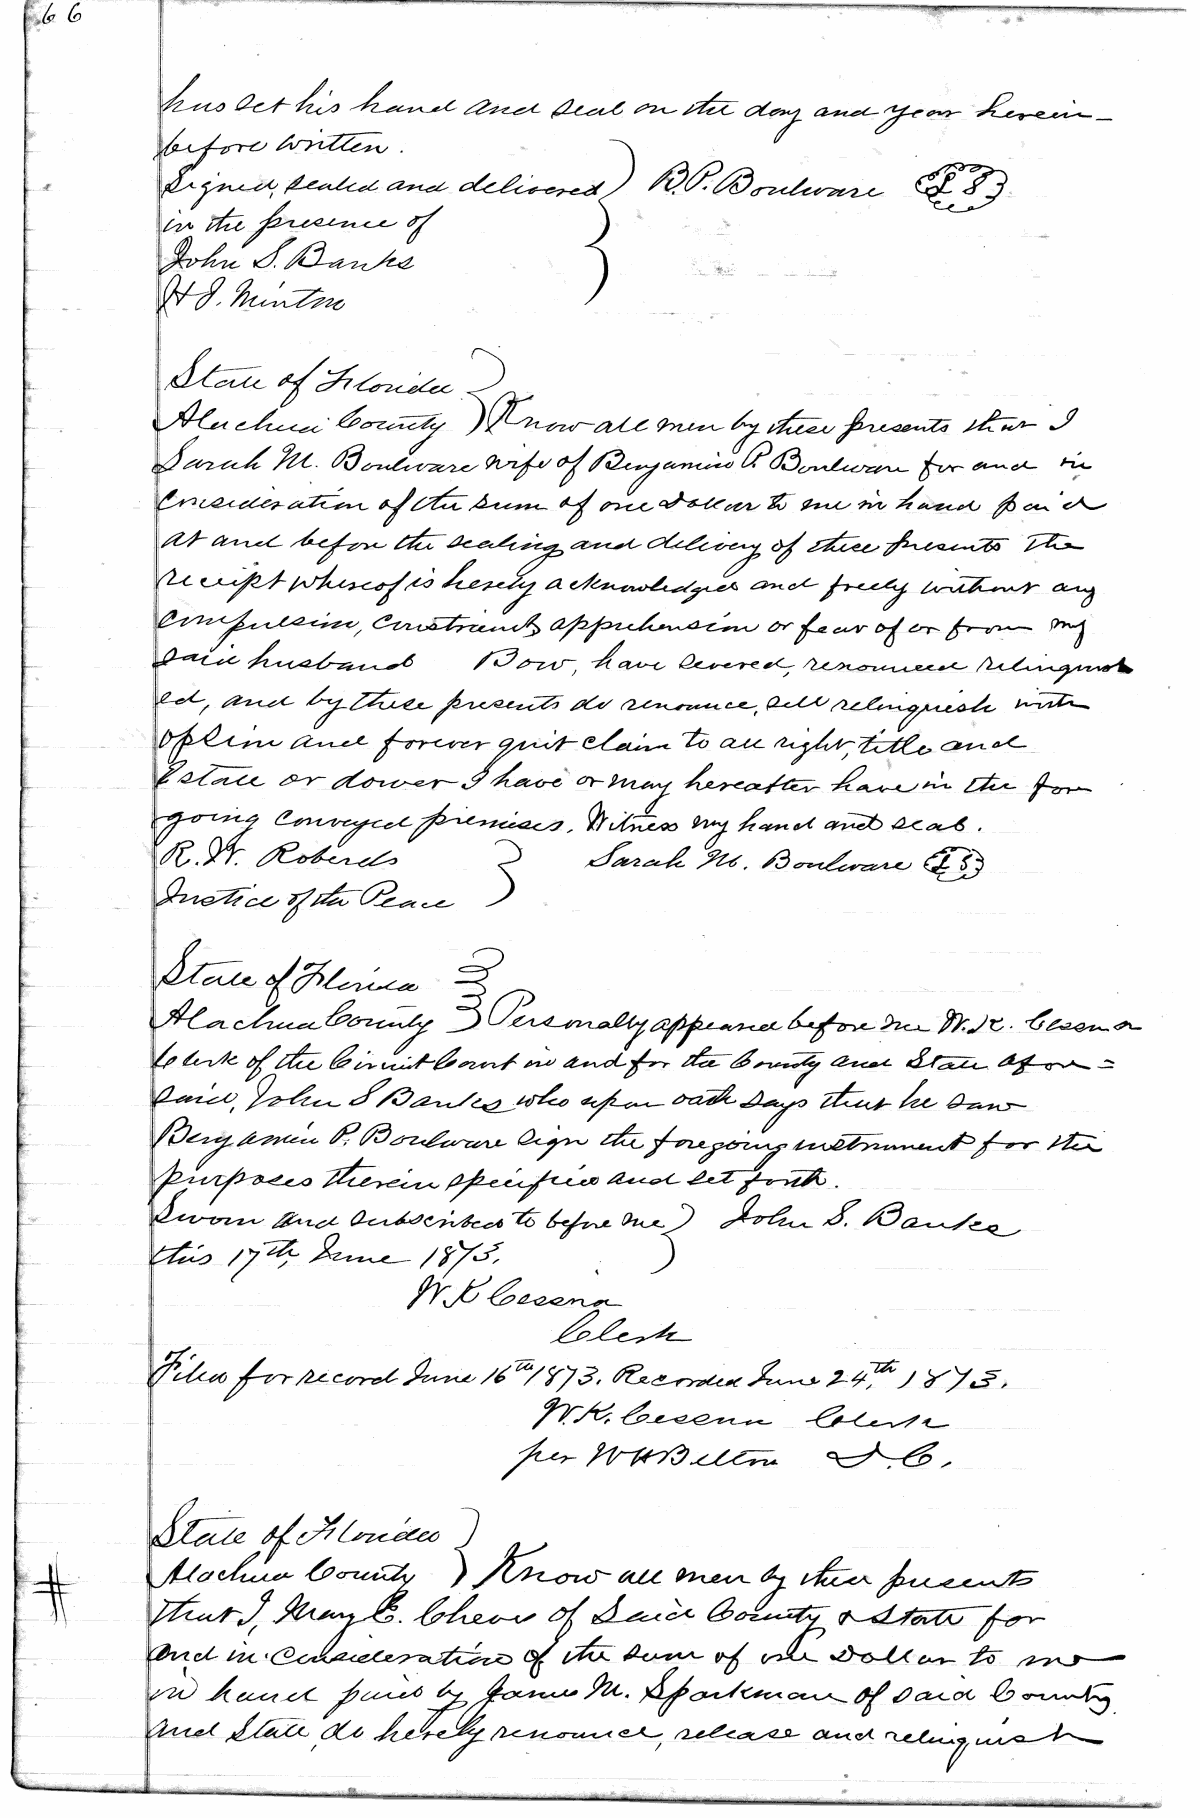 66
has set his hand and seal on the day and year herein-
before written.
Signed, sealed and delivered } B. P. Boulware L S
in the presence of
John S. Banks
H J. Minton
State of Florida
Alachua County } Know all men by these presents that I
Sarah M. Boulware wife of Benjamin P. Boulware for and in
Consideration of the sum of one Dollar to me in hand paid
at and before the sealing and delivery of these presents the
receipt whereof is hereby acknowledged and freely without any
compulsion, constraint, apprehension or fear of or from my
said husband Bow, have severed, renounced relinquish
ed, and by these presents do renounce, sell relinquish with
option and forever quit claim to all right, title and
Estate or dower I have or may hereafter have in the for
going conveyed premises. Witness my hand and seal.
R. W. Roberds } Sarah M. Boulware L S
Justice of the Peace
State of Florida
Alachua County } Personally appeared before me W. K. Cessna
Clerk of the Circuit Court in and for the County and State afore=
said, John S Banks who upon oath says that he saw
Benjamin P. Boulware sign the foregoing instrument for the
purposes therein specified and set forth.
Sworn and subscribed to before me } John S. Banks
this 17th, June 1873.
W. K Cessna
Clerk
Filed for record June 16th 1873. Recorded June 24th, 1873.
W. K. Cessna Clerk
per W H Belton D. C.
State of Florida
# Alachua County } Know all men by these presents
that I, Mary E. Cheves of Said County & State for
and in consideration of the sum of one Dollar to me
in hand paid by James M. Sparkman of said County
and State, do hereby renounce, release and relinquish